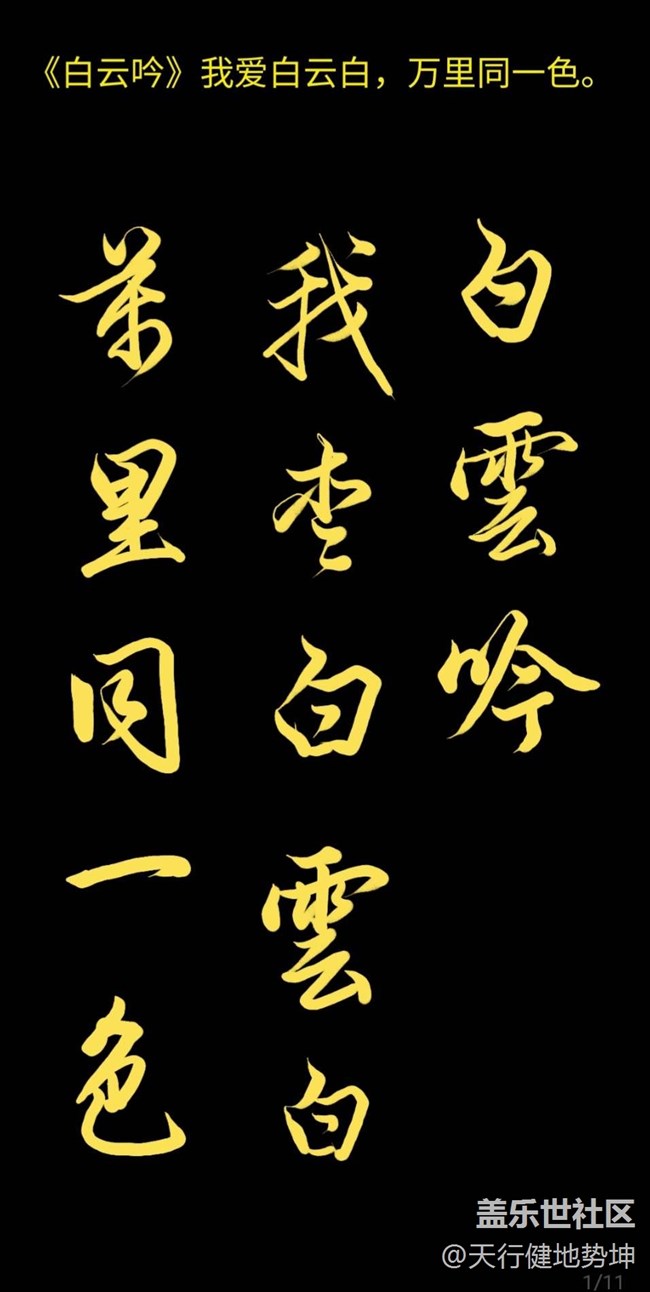 《白云吟》我爱白云白，万里同一色。
白雲吟
我李白雲白
萬里同一色
盖乐世社区
@天行健地势坤
1/11